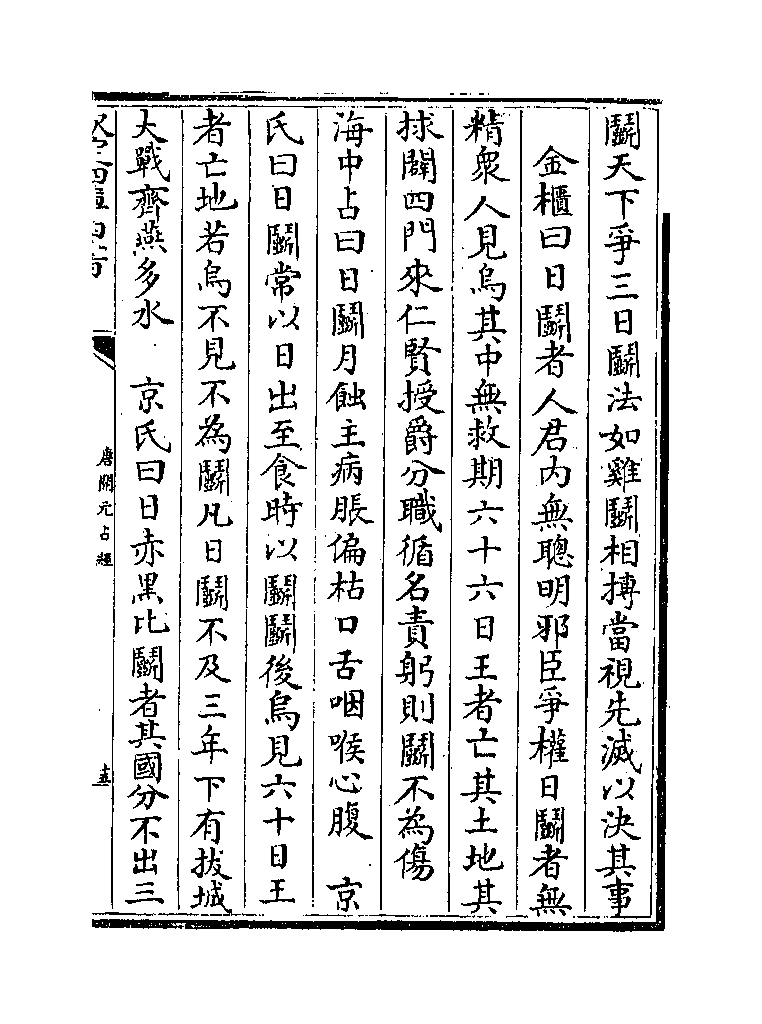 鬭天下爭三日鬭法如雞鬭相搏當視先滅以決其事
金櫃曰日鬭者人君内無聰明邪臣爭權日鬭者無
精衆人見烏其中無救期六十六日王者亡其土地其
捄闢四門來仁賢授爵分職循名責躬則鬭不為傷
海中占曰日鬭月蝕主病脹偏枯口舌咽喉心腹　京
氏曰日鬭常以日出至食時以鬭鬭後烏見六十日王
者亡地若烏不見不為鬭凡日鬭不及三年下有拔城
大戰齊燕多水　京氏曰日赤黑比鬭者其國分不出三
唐開元占經